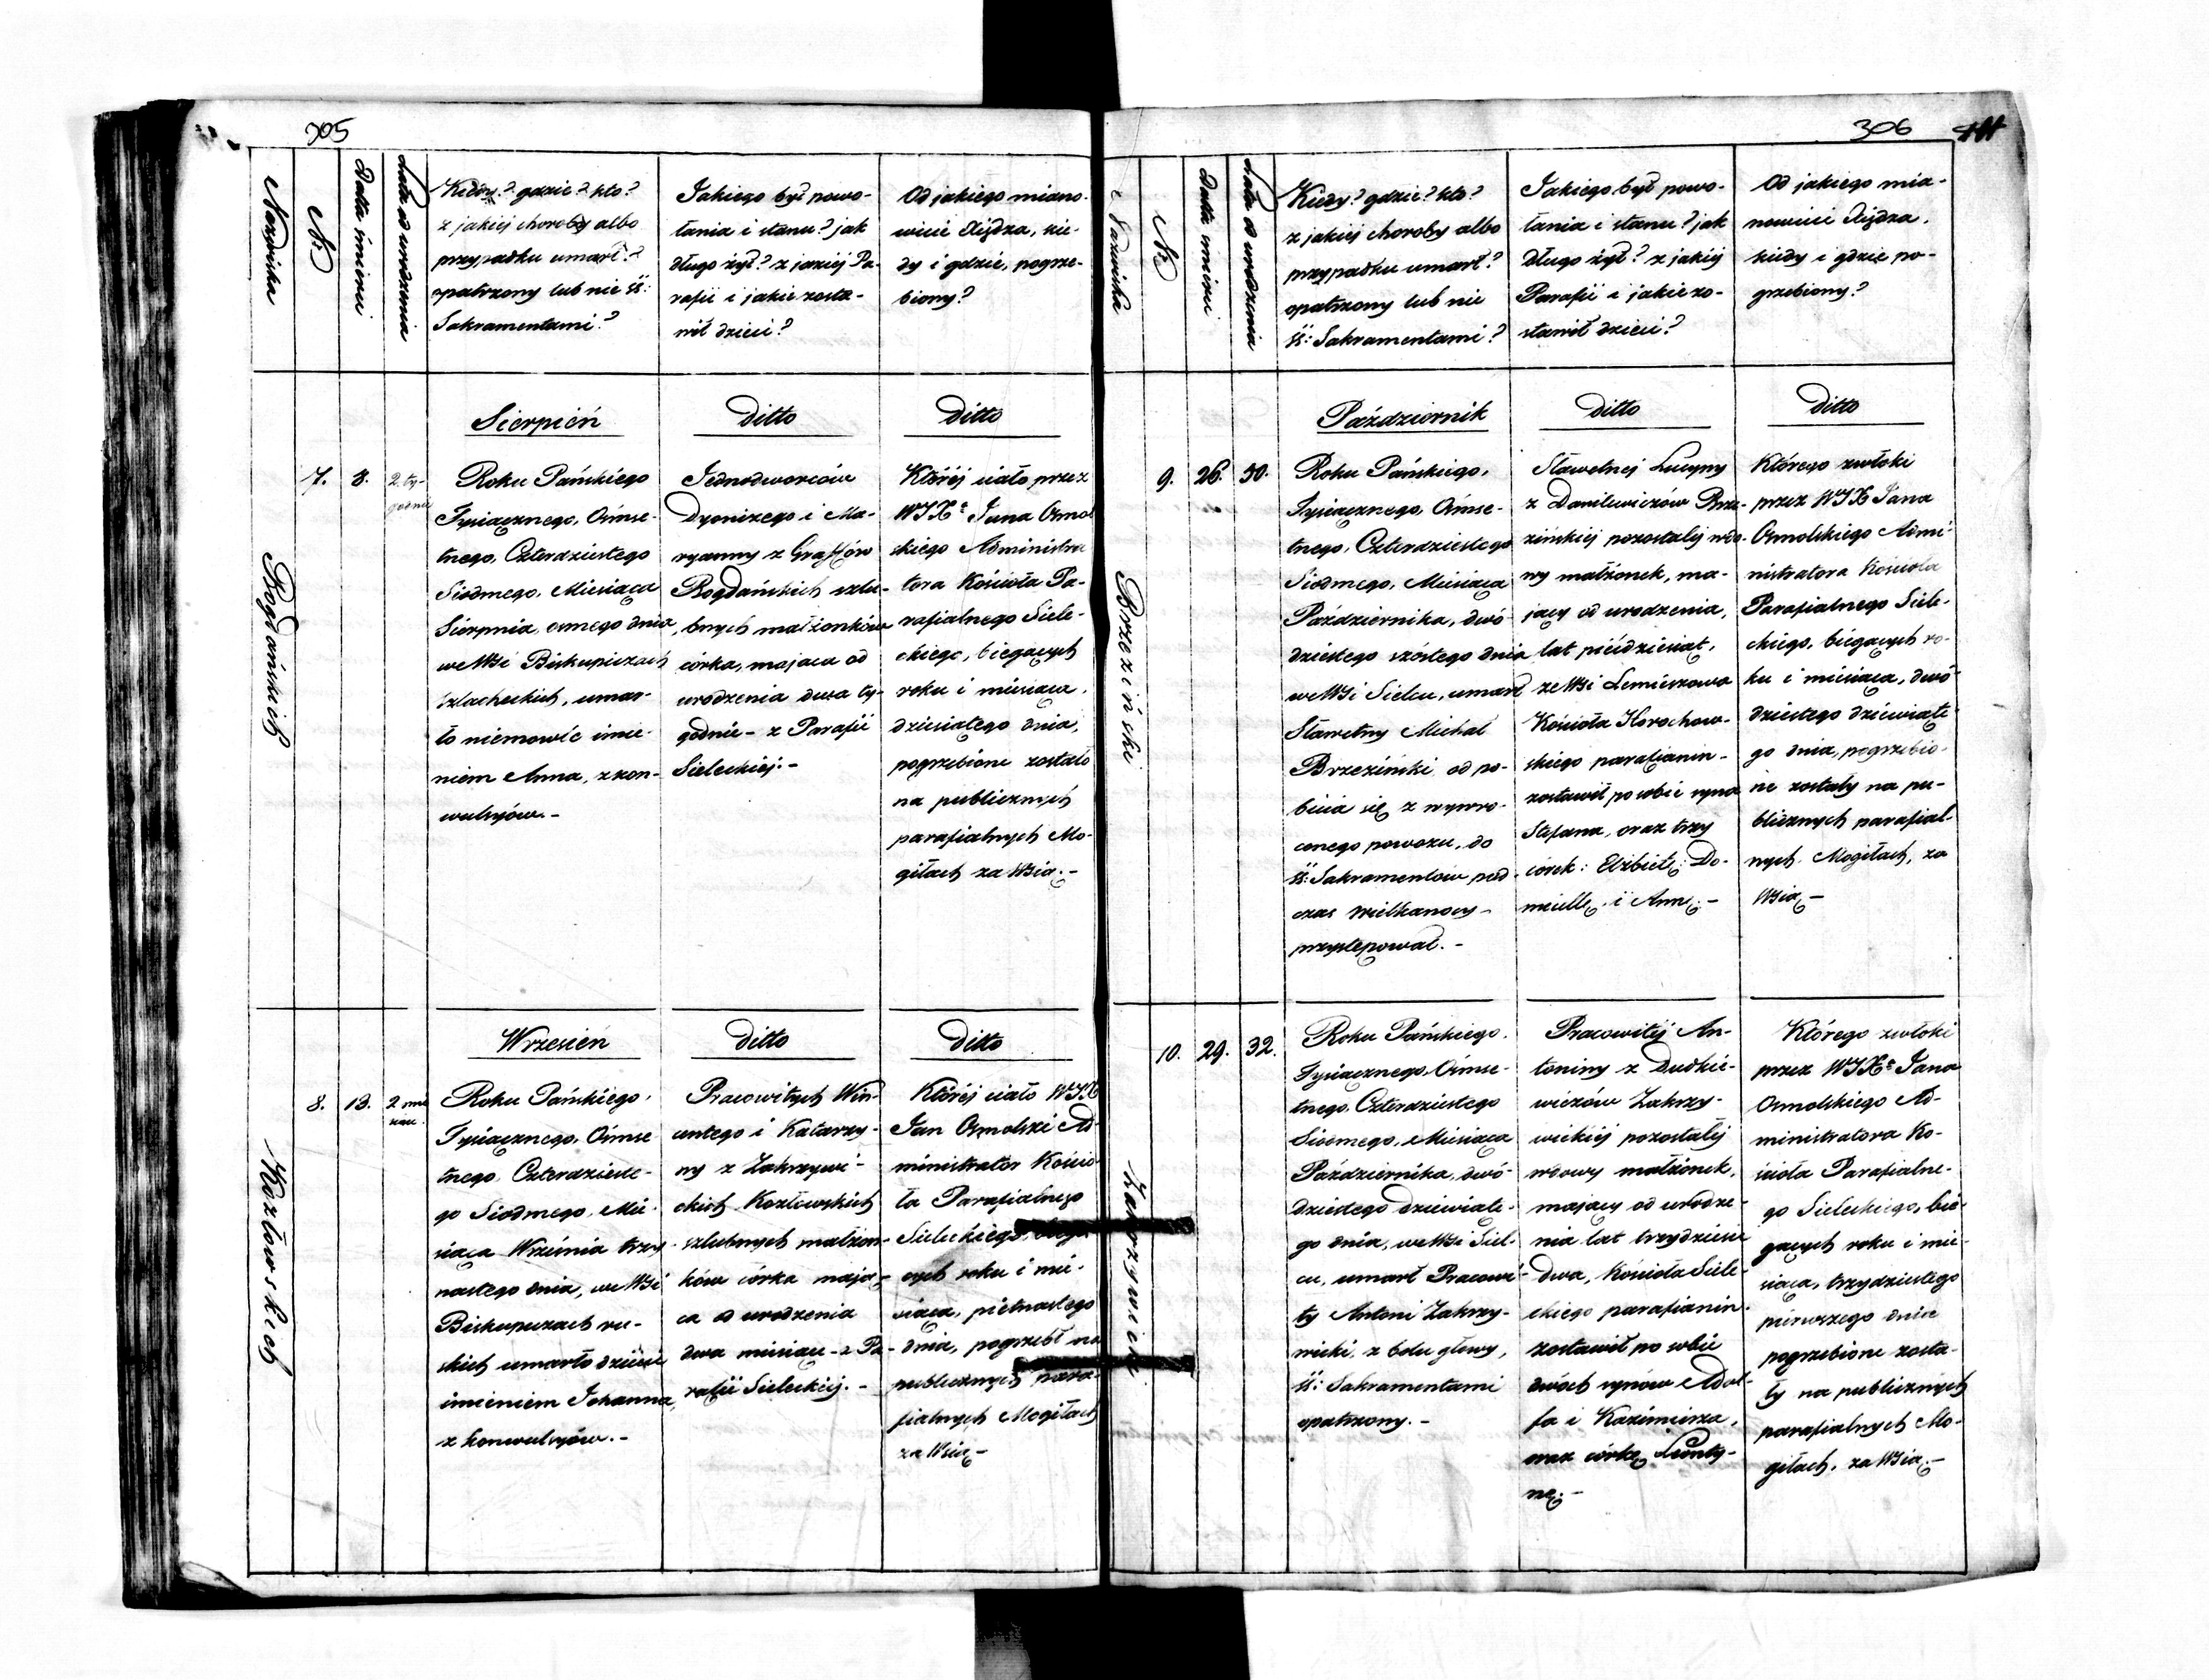 305
Nazwiska
№
Data śmierci
Lata od urodzenia
Kiedy? gdzie? kto?
z jakiej choroby albo
przypadku umarł?
opatrzony lub nie śś:
Sakramentami?
Jakiego był powo-
łania i stanu? jak
długo żył? z jakiej Pa-
rafii i jakie zosta-
wił dzieci?
Od jakiego miano-
wicie Xiędza, kie-
dy i gdzie, pogrze-
biony?
Sierpień
ditto
ditto
Bogdańskich
7.
8.
2. ty-
godnie
Roku Pańskiego
Tysiącznego, Ośmse-
tnego, Czterdziestego
Siódmego, Miesiąca
Sierpnia, osmego dnia
we Wsi Biskupiczach
szlacheckich, umar-
ło niemowlę imie-
niem Anna, z kon-
wulsyów.-
Jednodworców
Dyonizego i Ma-
ryanny z Graffów
Bogdańskich szlu-
bnych małżonków
córka, mająca od
urodzenia dwa ty-
godnie - z Parafii
Sieleckiej.-
Której ciało przez
WJXa Jana Osmol
skiego Administra
tora Kościoła Pa-
rafialnego Siele-
ckiego, biegących
roku i miesiąca,
dziesiątego dnia,
pogrzebione zostało
na publicznych
parafialnych Mo-
giłach za Wsią.-
Wrzesień
ditto
ditto
Kozłowskich
8.
13.
2 mie
siące.
Roku Pańskiego,
Tysiącznego, Ośmse
tnego, Czterdzieste-
go Siódmego, Mie-
siąca Września trzy-
nastego dnia, we Wsi
Biskupiczach ru-
skich umarło dziecie
imieniem Johanna,
z konwulsyów.-
Pracowitych Win-
centego i Katarzy-
ny z Zakrzywi-
ckich Kozłowskich
szlubnych małżon-
ków córka mają-
ca od urodzenia
dwa miesiące - z Pa-
rafii Sieleckiej.-
Której ciało WJX
Jan Osmolski Ad-
ministrator Kościo-
ła Parafialnego
Sieleckiego, biegą
cych roku i mie-
siąca, piętnastego
dnia, pogrzebł na
publicznych para-
fialnych Mogiłach
za Wsią.-
306
Nazwiska
№
Data śmierci
Lata od urodzenia
Kiedy? gdzie? kto?
z jakiej choroby albo
przypadku umarł?
opatrzony lub nie
śś: Sakramentami?
Jakiego był powo-
łania i stanu? jak
długo żył? z jakiej
Parafii i jakie zo-
stawił dzieci?
Od jakiego mia-
nowicie Xiędza,
kiedy i gdzie po-
grzebiony?
Październik
ditto
ditto
Brzeziński
9.
26.
50.
Roku Pańskiego,
Tysiącznego, Ośmse-
tnego, Czterdziestego
Siódmego, Miesiąca
Października, dwó-
dziestego szóstego dnia
we Wsi Sielcu, umarł
Sławetny Michał
Brzeziński od po-
bicia się z wywro-
conego powozu, do
śś: Sakramentów pod-
czas Wielkanocy -
przystępował.-
Sławetnej Lucyny
z Danilewiczów Brze-
zińskiej pozostałej wdo-
wy małżonek, ma-
jący od urodzenia,
lat pięćdziesiąt,
ze Wsi Lemieszowa
Kościoła Horochow-
skiego parafianin -
zostawił po sobie syna
Stefana, oraz trzy
córek: Elżbietę, Do-
micellę i Annę.-
Którego zwłoki
przez WJX Jana
Osmolskiego Admi-
nistratora Kościoła
Parafialnego Siele-
ckiego, biegących ro-
ku i miesiąca, dwó-
dziestego dziewiąte
go dnia, pogrzebio-
ne zostały na pu-
blicznych parafial-
nych Mogiłach, za
Wsią.-
Zakrzywicki
10.
29.
32.
Roku Pańskiego,
Tysiącznego, Ośmse-
tnego, Czterdziestego
Siódmego, Miesiąca
Października, dwó-
dziestego dziewiąte-
go dnia, we Wsi Siel-
cu, umarł Pracowi-
ty Antoni Zakrzy-
wicki, z bolu głowy,
śś: Sakramentami
opatrzony.-
Pracowitej An-
toniny z Dudkie-
wiczów Zakrzy-
wickiej pozostałej
wdowy małżonek,
mający od urodze-
nia lat trzydzieści
dwa, Kościoła Siele-
ckiego parafianin -
zostawił po sobie
dwóch synów Adol-
fa i Kazimierza,
oraz córkę Leonty-
nę.-
Którego zwłoki
przez WJXa Jana
Osmolskiego Ad-
ministratora Ko-
ścioła Parafialne-
go Sieleckiego, bie-
gących roku i mie-
siąca, trzydziestego
pierwszego dnia
pogrzebione zosta-
ły na publicznych
parafialnych Mo-
giłach, za Wsią.-